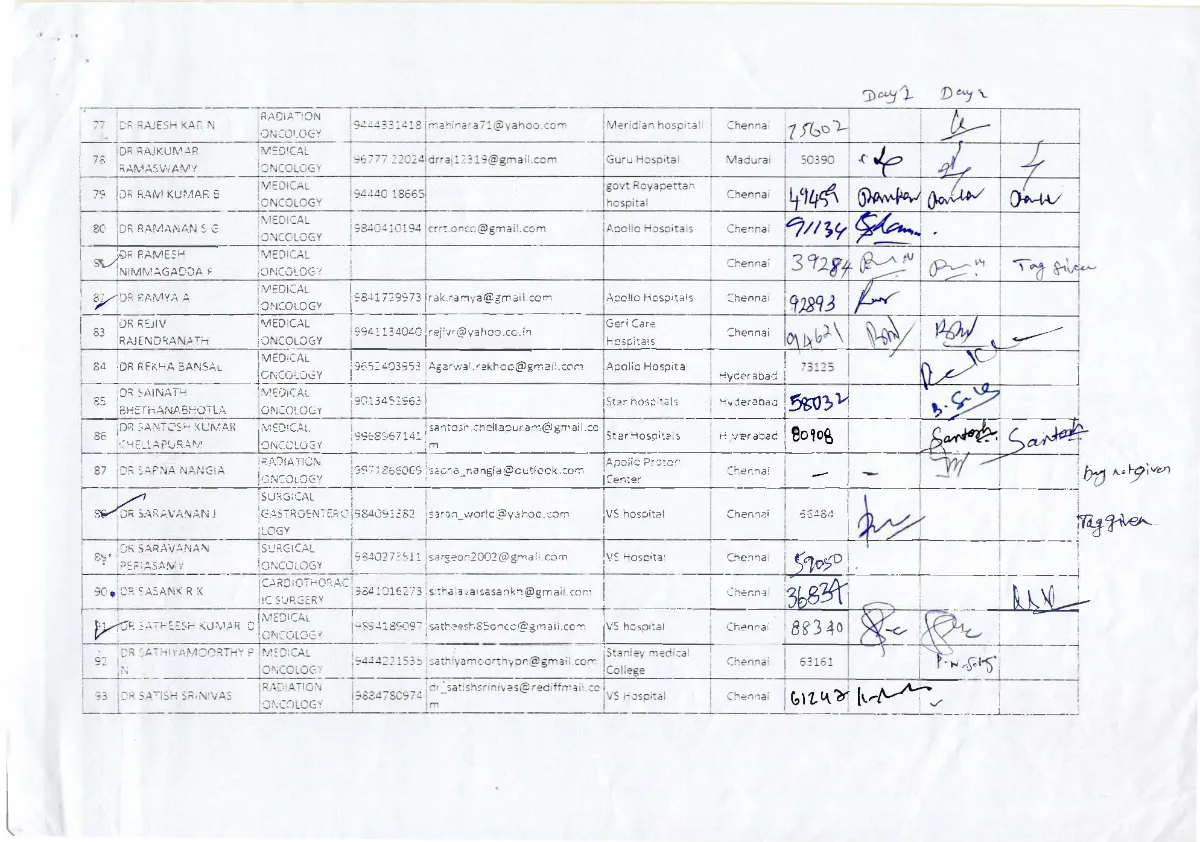 Day 1 Day 2
77 DR RAJESH KAR N RADIATION ONCOLOGY 9444331418 mahinara71@yahoo.com Meridian hospitall Chennai 75602
78 DR RAJKUMAR RAMASWAMY MEDICAL ONCOLOGY 96777 22024 drraj12319@gmail.com Guru Hospital Madurai 50390
79 DR RAM KUMAR S MEDICAL ONCOLOGY 94440 18665 govt Royapettah hospital Chennai 49459
80 DR RAMANAN S G MEDICAL ONCOLOGY 9840410194 crrt.onco@gmail.com Apollo Hospitals Chennai 91134
DR RAMESH NIMMAGADDA MEDICAL ONCOLOGY Chennai 39284 Tag given
82 DR RAMYA A MEDICAL ONCOLOGY 9841729973 rak.ramya@gmail.com Apollo Hospitals Chennai 92893
83 DR REJIV RAJENDRANATH MEDICAL ONCOLOGY 9941134040 rejivr@yahoo.co.in Geri Care Hospitals Chennai 94621
84 DR REKHA BANSAL MEDICAL ONCOLOGY 9652403953 Agarwal.rekhoo@gmail.com Apollo Hospital Hyderabad 73125
85 DR SAINATH BHETHANABHOTLA MEDICAL ONCOLOGY 9013452963 Star hospitals Hyderabad 58032
86 DR SANTOSH KUMAR CHELLAPURAM MEDICAL ONCOLOGY 9968967141 santosh.chellapuram@gmail.com Star Hospitals Hyderabad 80908 Santosh Santosh
87 DR SAPNA NANGIA RADIATION ONCOLOGY 9971866069 sapna_nangia@outlook.com Apollo Proton Center Chennai – – bag not given
88 DR SARAVANAN J SURGICAL GASTROENTEROLOGY 984091382 saran_world@yahoo.com VS hospital Chennai 66484 Tag given
89 DR SARAVANAN PERIASAMY SURGICAL ONCOLOGY 9840273911 sargeon2002@gmail.com VS Hospital Chennai 59050
90 DR SASANK R K CARDIOTHORACIC SURGERY 9841016273 sithalavaisasankh@gmail.com Chennai 36834
91 DR SATHEESH KUMAR D MEDICAL ONCOLOGY 9894189097 satheesh85onco@gmail.com VS hospital Chennai 88340
92 DR SATHIYAMOORTHY P N MEDICAL ONCOLOGY 9444221535 sathiyamoorthypn@gmail.com Stanley medical College Chennai 63161
93 DR SATISH SRINIVAS RADIATION ONCOLOGY 9884780974 dr_satishsrinivas@rediffmail.com VS Hospital Chennai 61242